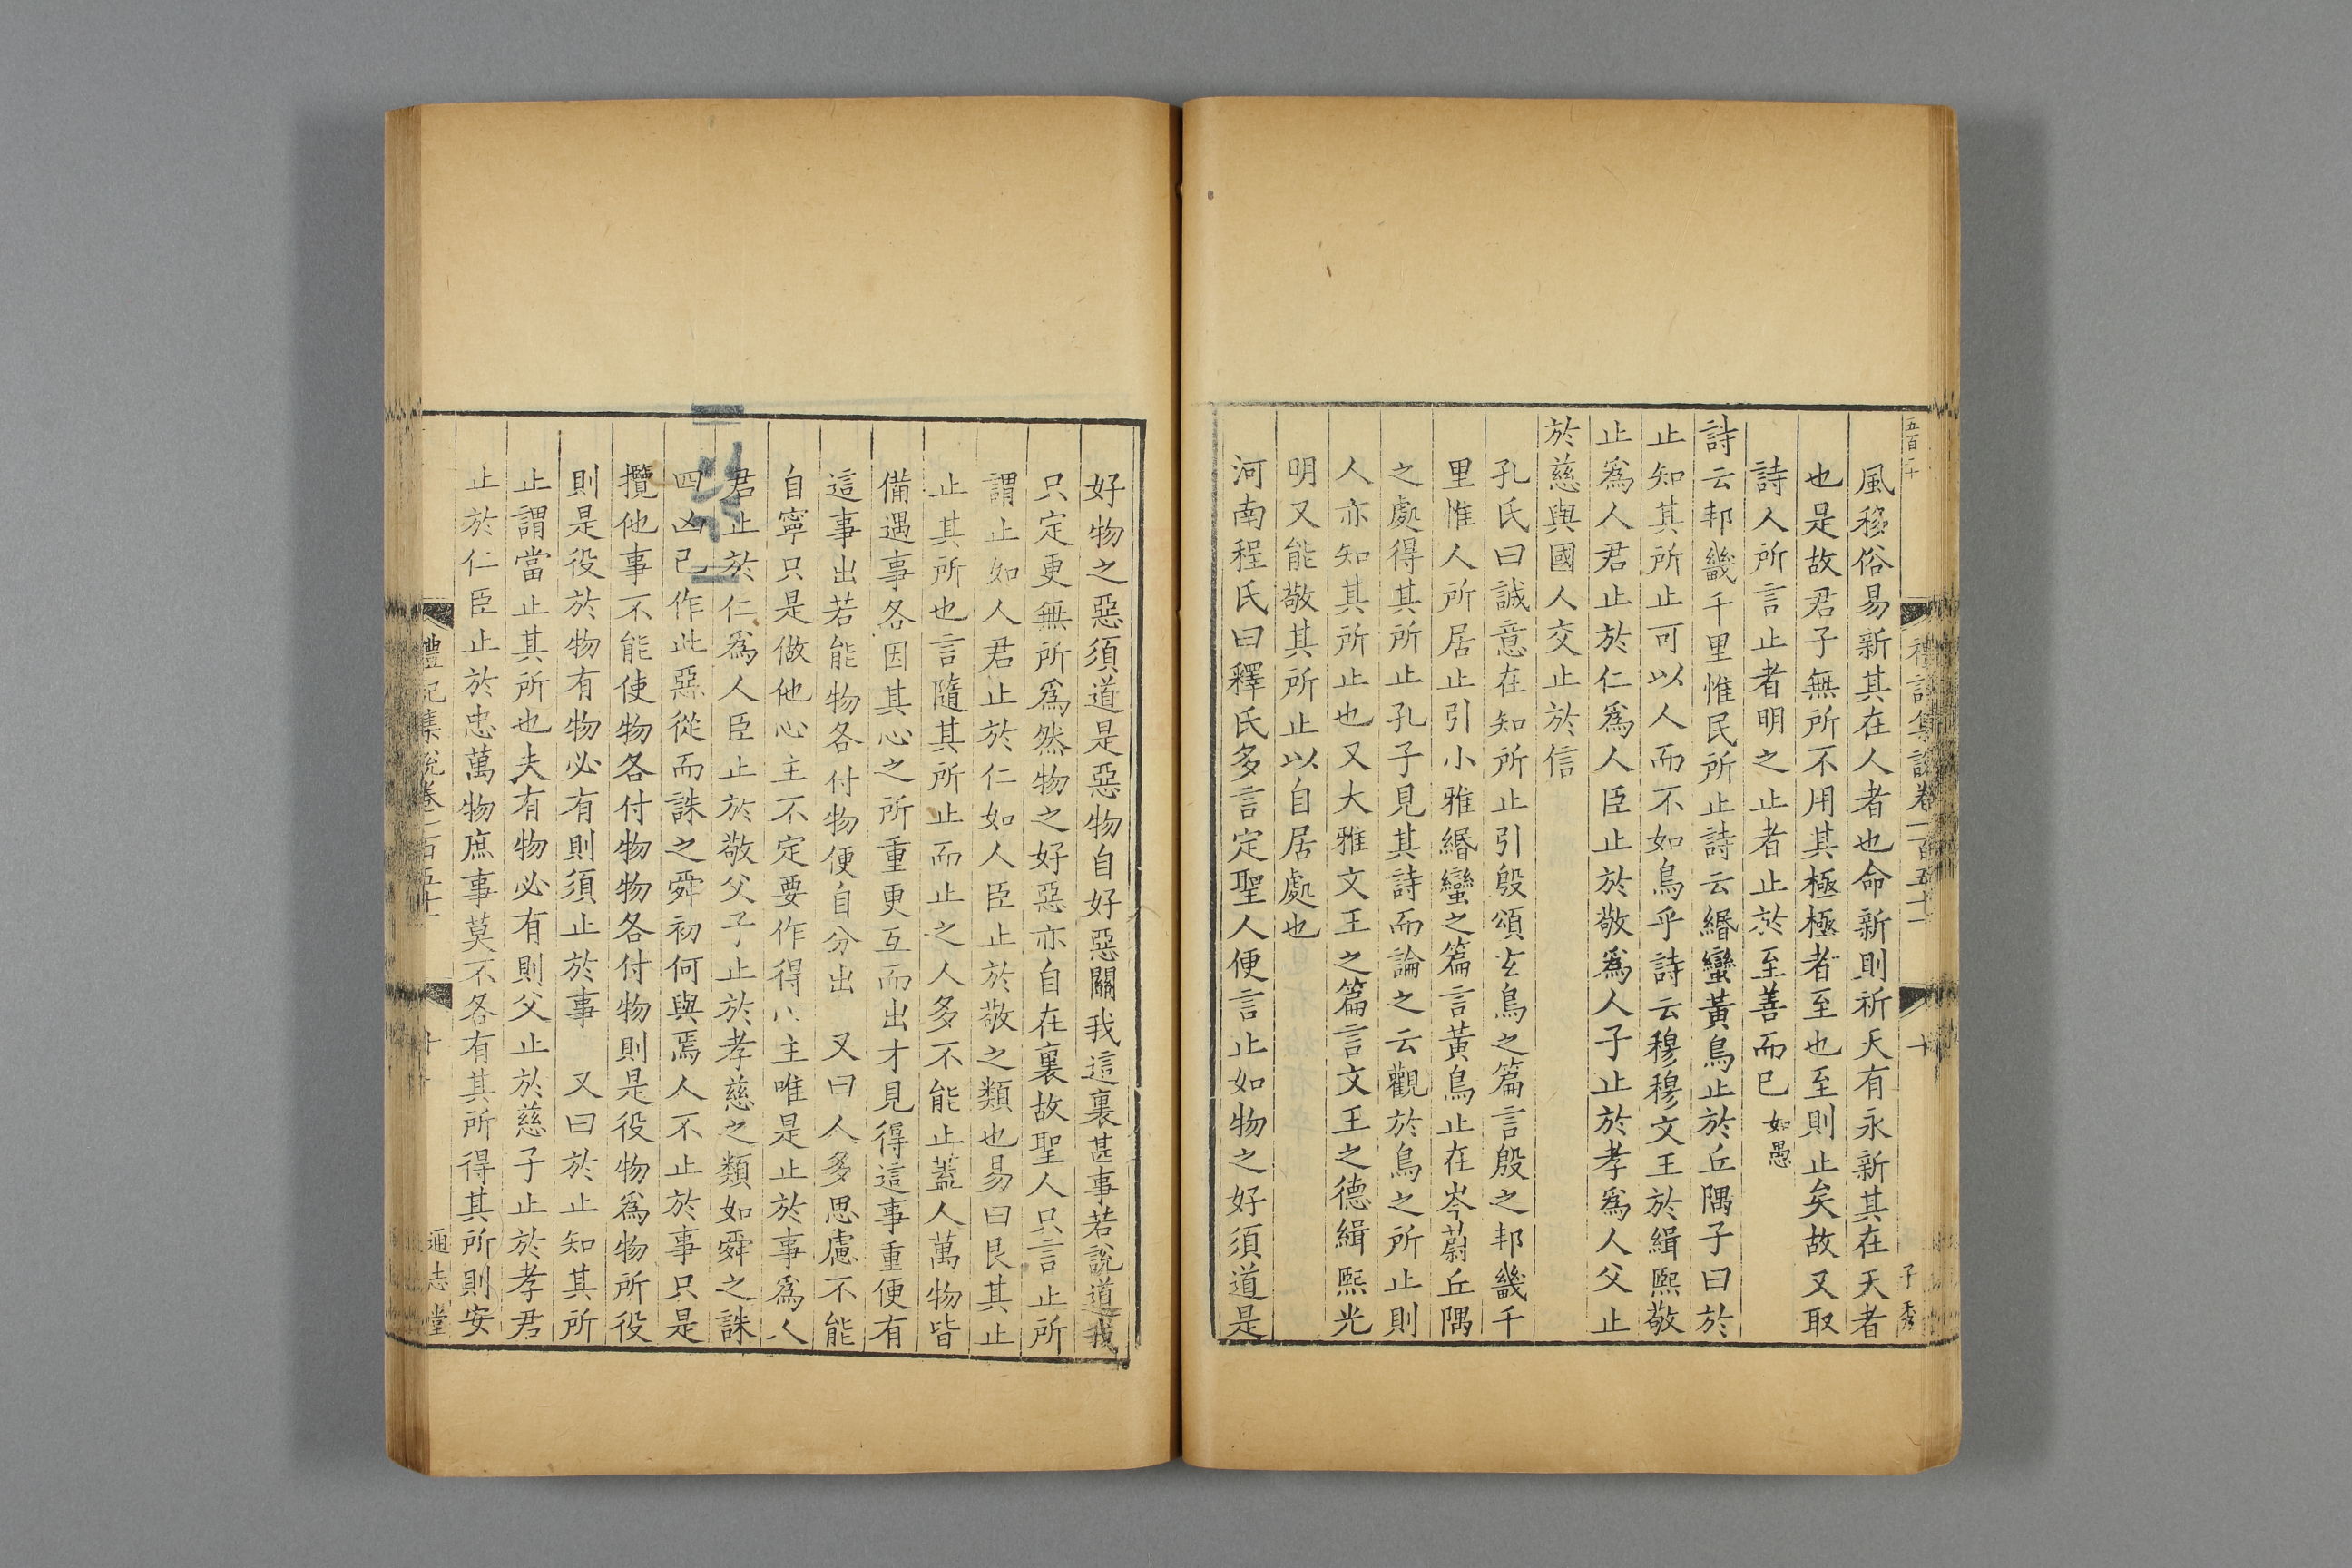 五百二十
禮記集說卷一百五十一 十 子秀
風移俗易新其在人者也命新則祈天有永新其在天者
也是故君子無所不用其極極者至也至則止矣故又取
詩人所言止者明之止者止於至善而已 如愚
詩云邦畿千里惟民所止詩云緡蠻黃鳥止於丘隅子曰於
止知其所止可以人而不如鳥乎詩云穆穆文王於緝熙敬
止爲人君止於仁爲人臣止於敬爲人子止於孝爲人父止
於慈與國人交止於信
孔氏曰誠意在知所止引殷頌玄鳥之篇言殷之邦畿千
里惟人所居止引小雅緡蠻之篇言黃鳥止在岑蔚丘隅
之處得其所止孔子見其詩而論之云觀於鳥之所止則
人亦知其所止也又大雅文王之篇言文王之德緝熙光
明又能敬其所止以自居處也
河南程氏曰釋氏多言定聖人便言止如物之好須道是
好物之惡須道是惡物自好惡關我這裏甚事若說道我
只定更無所爲然物之好惡亦自在裏故聖人只言止所
謂止如人君止於仁如人臣止於敬之類也易曰艮其止
止其所也言隨其所止而止之人多不能止蓋人萬物皆
備遇事各因其心之所重更互而出才見得這事重便有
這事出若能物各付物便自分出 又曰人多思慮不能
自寧只是做他心主不定要作得心主唯是止於事爲人
君止於仁爲人臣止於敬父子止於孝慈之類如舜之誅
四凶已作此惡從而誅之舜初何與焉人不止於事只是
攬他事不能使物各付物物各付物則是役物爲物所役
則是役於物有物必有則須止於事 又曰於止知其所
止謂當止其所也夫有物必有則父止於慈子止於孝君
止於仁臣止於忠萬物庶事莫不各有其所得其所則安
禮記集說卷一百五十一 十 通志堂